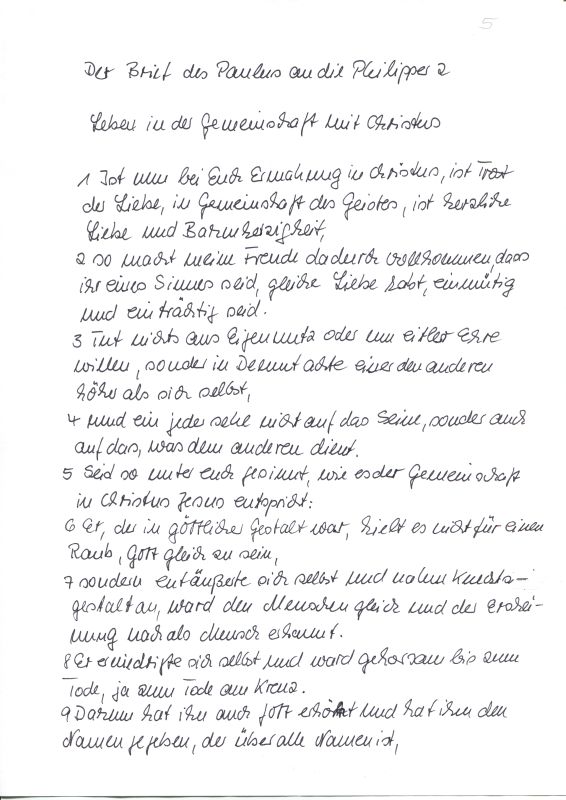 5
Der Brief des Paulus an die Philipper 2
Leben in der Gemeinschaft mit Christus
1 Ist nun bei Euch Ermahnung in Christus, ist Trost
der Liebe, in Gemeinschaft des Geistes, ist herzliche
Liebe und Barmherzigkeit,
2 so macht meine Freude dadurch vollkommen, dass
ihr eines Sinnes seid, gleiche Liebe habt, einmütig
und einträchtig seid.
3 Tut nichts aus Eigennutz oder um eitler Ehre
willen, sonder in Demut achte einer den anderen
höher als sich selbst,
4 und ein jeder sehe nicht auf das Seine, sonder auch
auf das, was dem anderen dient.
5 Seid so unter euch gesinnt, wie es der Gemeinschaft
in Christus Jesus entspricht:
6 Er, der in göttlicher Gestalt war, hielt es nicht für einen
Raub, Gott gleich zu sein,
7 sondern entäußerte sich selbst und nahm Knechts-
gestalt an, ward den Menschen gleich und der Erschei-
nung nach als Mensch erkannt.
8 Er erniedrigte sich selbst und ward gehorsam bis zum
Tode, ja zum Tode am Kreuz.
9 Darum hat ihn auch Gott erhöht und hat ihm den
Namen gegeben, der über alle Namen ist,